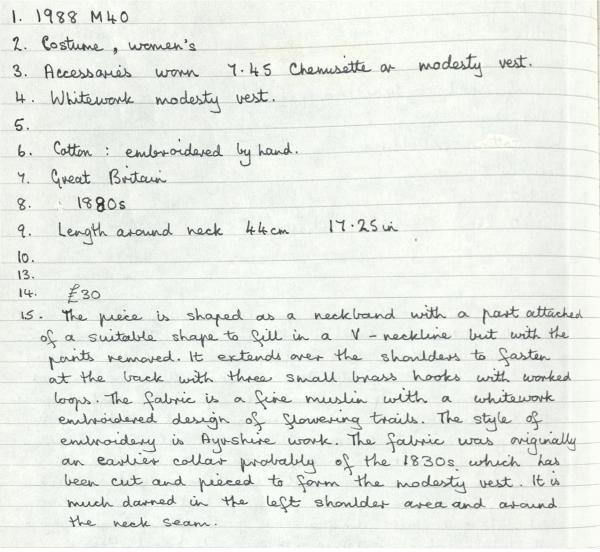 1. 1988 M40
2. Costume, women's
3. Accessories worn 7.45 Chemisette or modesty vest.
4. Whitework modesty vest.
5.
6. Cotton : embroidered by hand.
7. Great Britain
8. 1880s
9. Length around neck 44cm 17.25in
10.
13.
14. £30
15. The piece is shaped as a neckband with a part attached
of a suitable shape to fill in a V-neckline but with the
points removed. It extends over the shoulders to fasten
at the back with three small brass hooks with worked
loops. The fabric is a fine muslin with a whitework
embroidered design of flowering trails. The style of
embroidery is Ayrshire work. The fabric was originally
an earlier collar probably of the 1830s which has
been cut and pieced to form the modesty vest. It is
much darned in the left shoulder area and around
the neck seam.